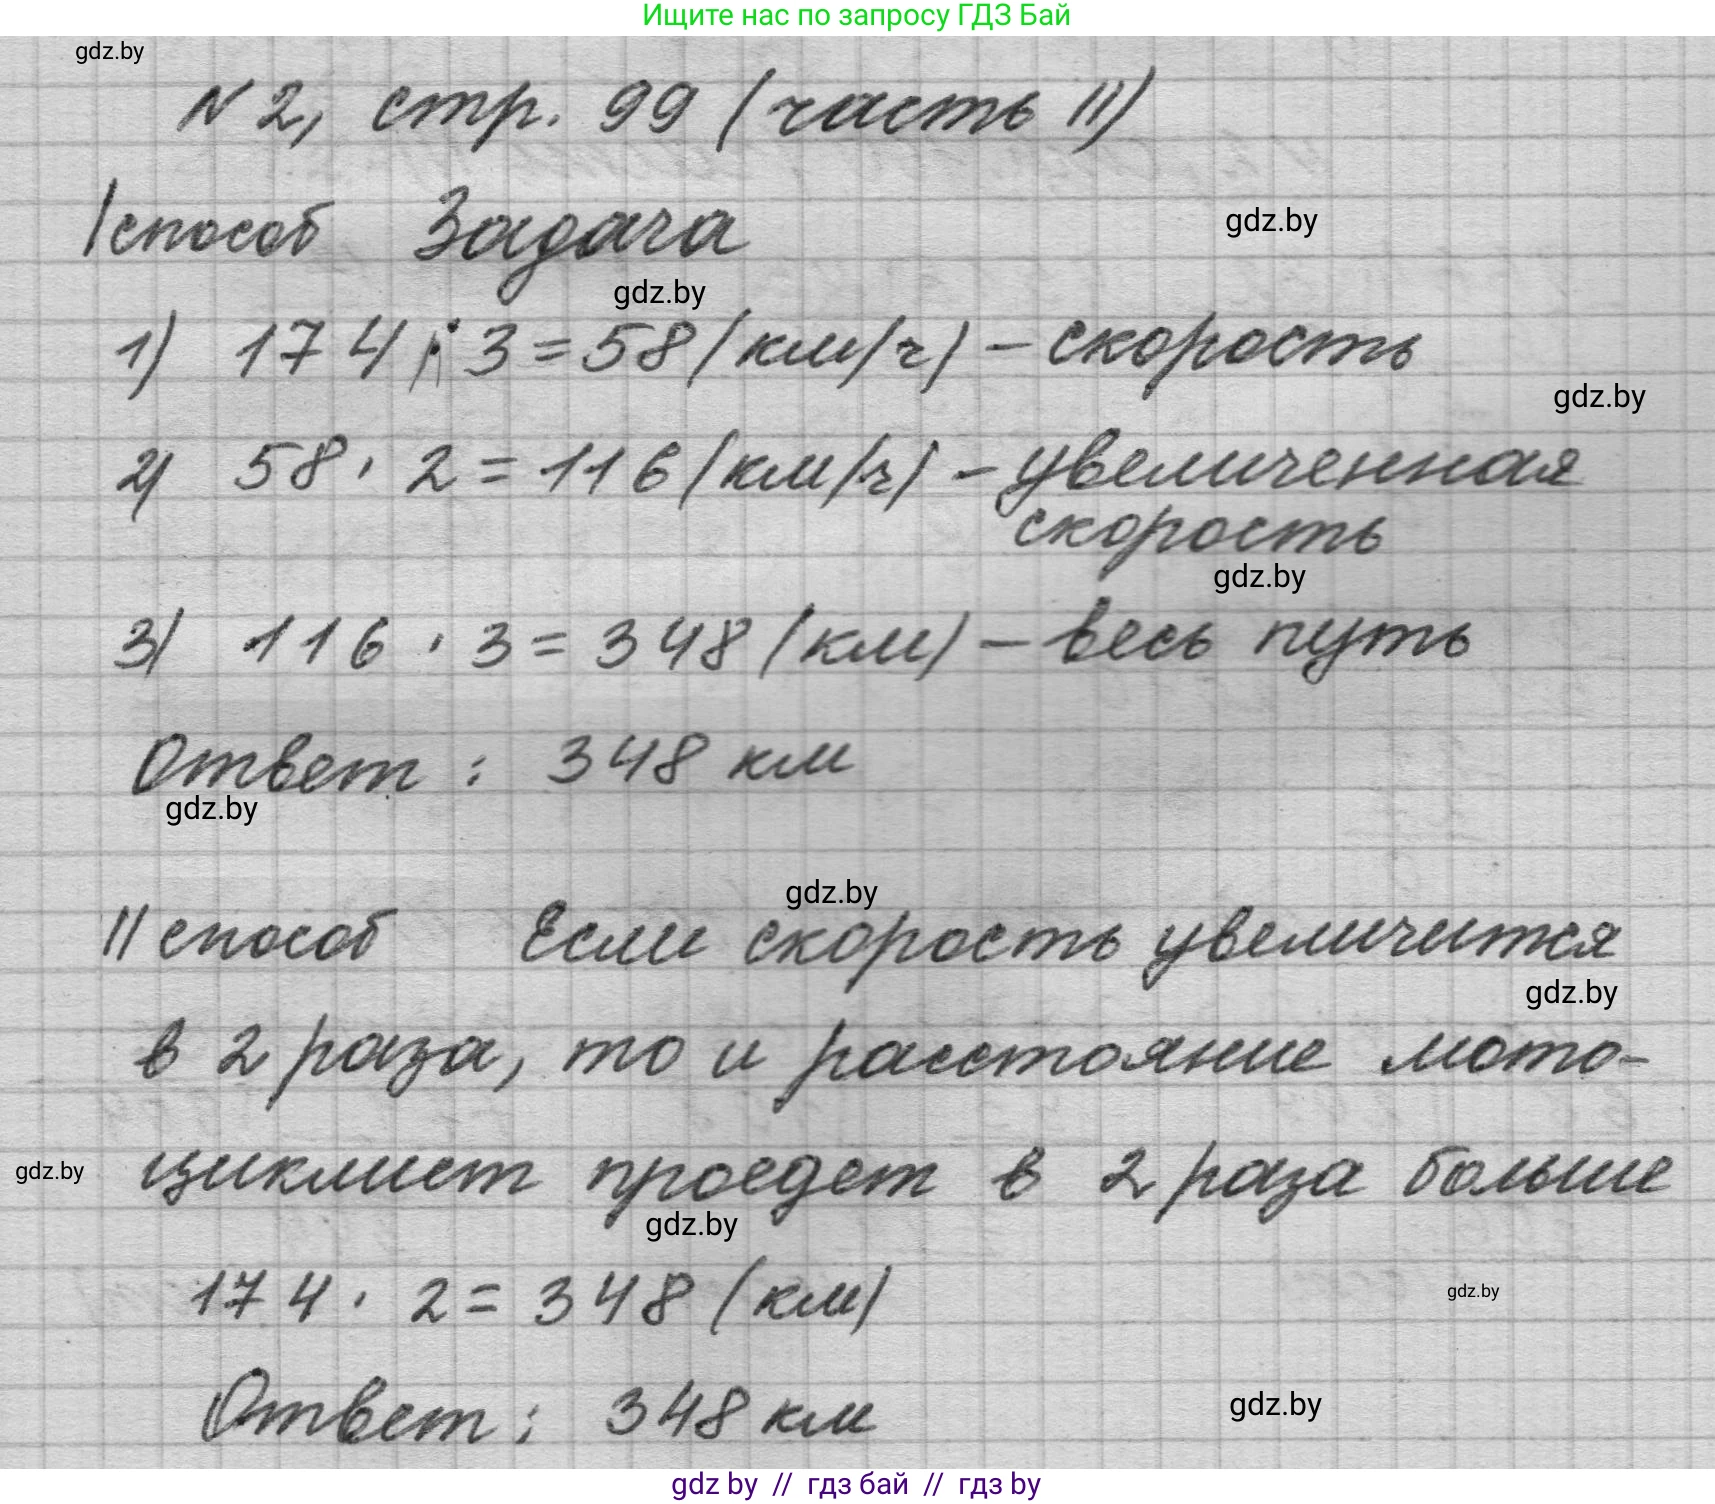 Ищите нас по запросу ГДЗ Бай
gdz.by
N 2, стр. 99 (часть II)
I способ Задача
gdz.by
gdz.by
1) 174 : 3 = 58 (км/ч) - скорость
gdz.by
2) 58 · 2 = 116 (км/ч) - увеличенная
скорость
gdz.by
3) 116 · 3 = 348 (км) - весь путь
Ответ: 348 км
gdz.by
gdz.by
II способ Если скорость увеличится
gdz.by
в 2 раза, то и расстояние мото-
gdz.by циклист проедет в 2 раза больше
gdz.by
174 · 2 = 348 (км)
gdz.by
Ответ: 348 км
gdz.by
gdz by // гдз бай // гдз by